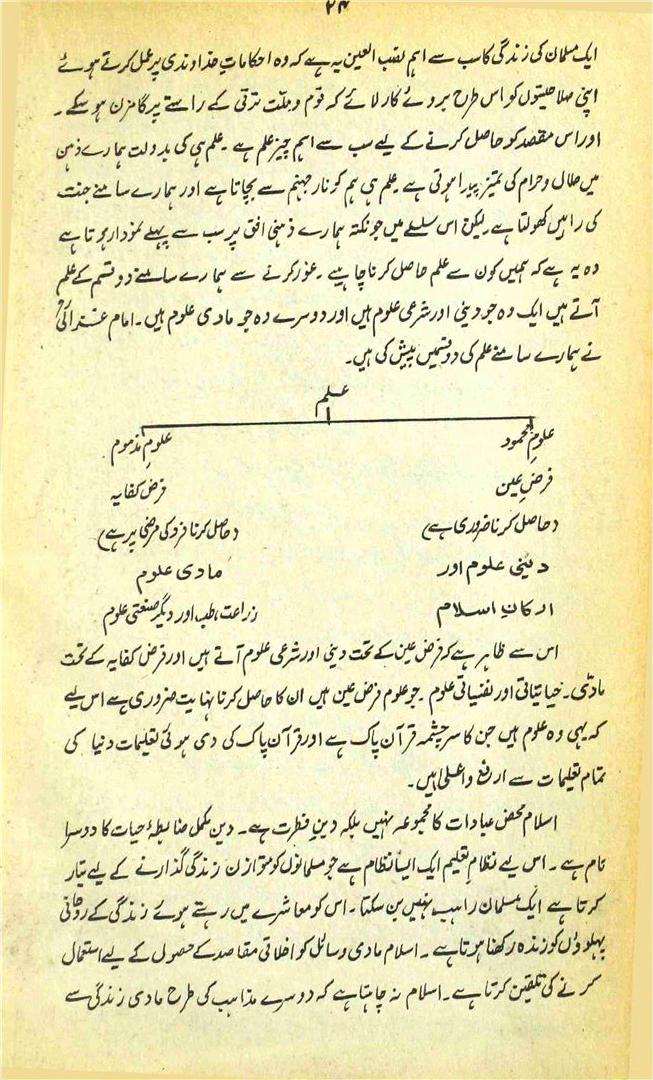 ۲۴
ایک مسلمان کی زندگی کا سب سے اہم نصب العین یہ ہے کہ وہ احکاماتِ خداوندی پر عمل کرتے ہوئے
اپنی صلاحیتوں کو اس طرح بروئے کار لائے کہ قوم و ملت ترقی کے راستے پر گامزن ہو سکے۔
اور اس مقصد کو حاصل کرنے کے لیے سب سے اہم چیز علم ہے۔ علم ہی کی بدولت ہمارے ذہن
میں حلال و حرام کی تمیز پیدا ہوتی ہے۔ علم ہی ہم کو نارِ جہنم سے بچاتا ہے اور ہمارے سامنے جنت
کی راہیں کھولتا ہے۔ لیکن اس سلسلے میں جو نکتہ ہمارے ذہنی افق پر سب سے پہلے نمودار ہوتا ہے
وہ یہ ہے کہ ہمیں کون سے علم حاصل کرنا چاہیے۔ غور کرنے سے ہمارے سامنے دو قسم کے علم
آتے ہیں ایک وہ جو دینی اور شرعی علوم ہیں اور دوسرے وہ جو مادی علوم ہیں۔ امام غزالیؒ
نے ہمارے سامنے علم کی دو قسمیں پیش کی ہیں۔
علم
علومِ محمود علومِ مذموم
فرضِ عین فرض کفایہ
(حاصل کرنا ضروری ہے) (حاصل کرنا فرد کی مرضی پر ہے)
دینی علوم اور مادی علوم
ارکانِ اسلام زراعت، طب اور دیگر صنعتی علوم
اس سے ظاہر ہے کہ فرض عین کے تحت دینی اور شرعی علوم آتے ہیں اور فرض کفایہ کے تحت
مادّی۔ حیاتیاتی اور نفسیاتی علوم۔ جو علوم فرض عین ہیں ان کا حاصل کرنا نہایت ضروری ہے اس لیے
کہ یہی وہ علوم ہیں جن کا سرچشمہ قرآن پاک ہے اور قرآن پاک کی دی ہوئی تعلیمات دنیا کی
تمام تعلیمات سے ارفع و اعلیٰ ہیں۔
اسلام محض عبادات کا مجموعہ نہیں بلکہ دینِ فطرت ہے۔ دین مکمل ضابطۂ حیات کا دوسرا
نام ہے۔ اس لیے نظامِ تعلیم ایک ایسا نظام ہے جو مسلمانوں کو متوازن زندگی گذارنے کے لیے تیار
کرتا ہے ایک مسلمان راہب نہیں بن سکتا۔ اس کو معاشرے میں رہتے ہوئے زندگی کے روحانی
پہلوؤں کو زندہ رکھنا ہوتا ہے۔ اسلام مادی وسائل کو اخلاقی مقاصد کے حصول کے لیے استعمال
کرنے کی تلقین کرتا ہے۔ اسلام نہ چاہتا ہے کہ دوسرے مذاہب کی طرح مادی زندگی سے